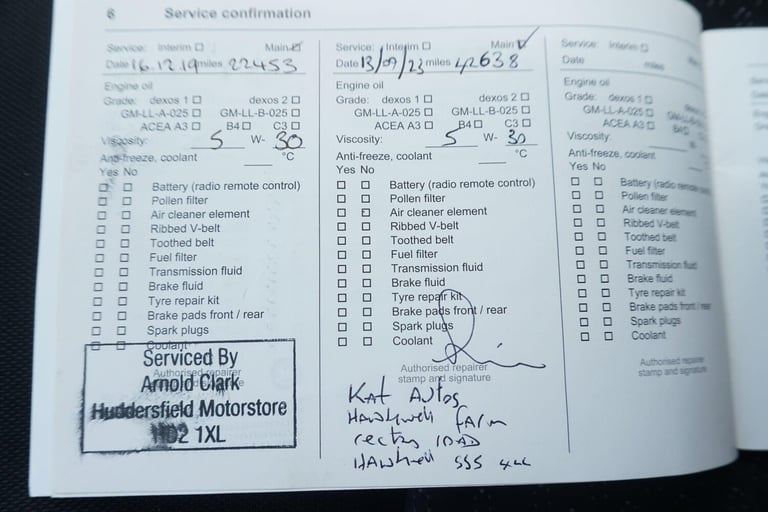 6 Service confirmation
Service: Interim Main
Date 16.12.19 miles 22453
Engine oil
Grade: dexos 1 dexos 2
GM-LL-A-025 GM-LL-B-025
ACEA A3 B4 C3
Viscosity: 5 W- 30
Anti-freeze, coolant °C
Yes No
Battery (radio remote control)
Pollen filter
Air cleaner element
Ribbed V-belt
Toothed belt
Fuel filter
Transmission fluid
Brake fluid
Tyre repair kit
Brake pads front / rear
Spark plugs
Coolant
Authorised repairer
Serviced By
Arnold Clark
Huddersfield Motorstore
HD2 1XL
Service: Interim Main
Date 13/09/23 miles 42638
Engine oil
Grade: dexos 1 dexos 2
GM-LL-A-025 GM-LL-B-025
ACEA A3 B4 C3
Viscosity: 5 W- 30
Anti-freeze, coolant °C
Yes No
Battery (radio remote control)
Pollen filter
Air cleaner element
Ribbed V-belt
Toothed belt
Fuel filter
Transmission fluid
Brake fluid
Tyre repair kit
Brake pads front / rear
Spark plugs
Coolant
Authorised repairer
stamp and signature
Kat Autos
Hawkwell farm
Hawkwell SS5 4LL
Service: Interim
Date miles
Engine oil
Grade: dexos 1
GM-LL-A-025
ACEA A3 B4
Viscosity: W-
Anti-freeze, coolant °C
Yes No
Battery (radio remote
Pollen filter
Air cleaner element
Ribbed V-belt
Toothed belt
Fuel filter
Transmission fluid
Brake fluid
Tyre repair kit
Brake pads front / rear
Spark plugs
Coolant
Authorised repairer
stamp and signature